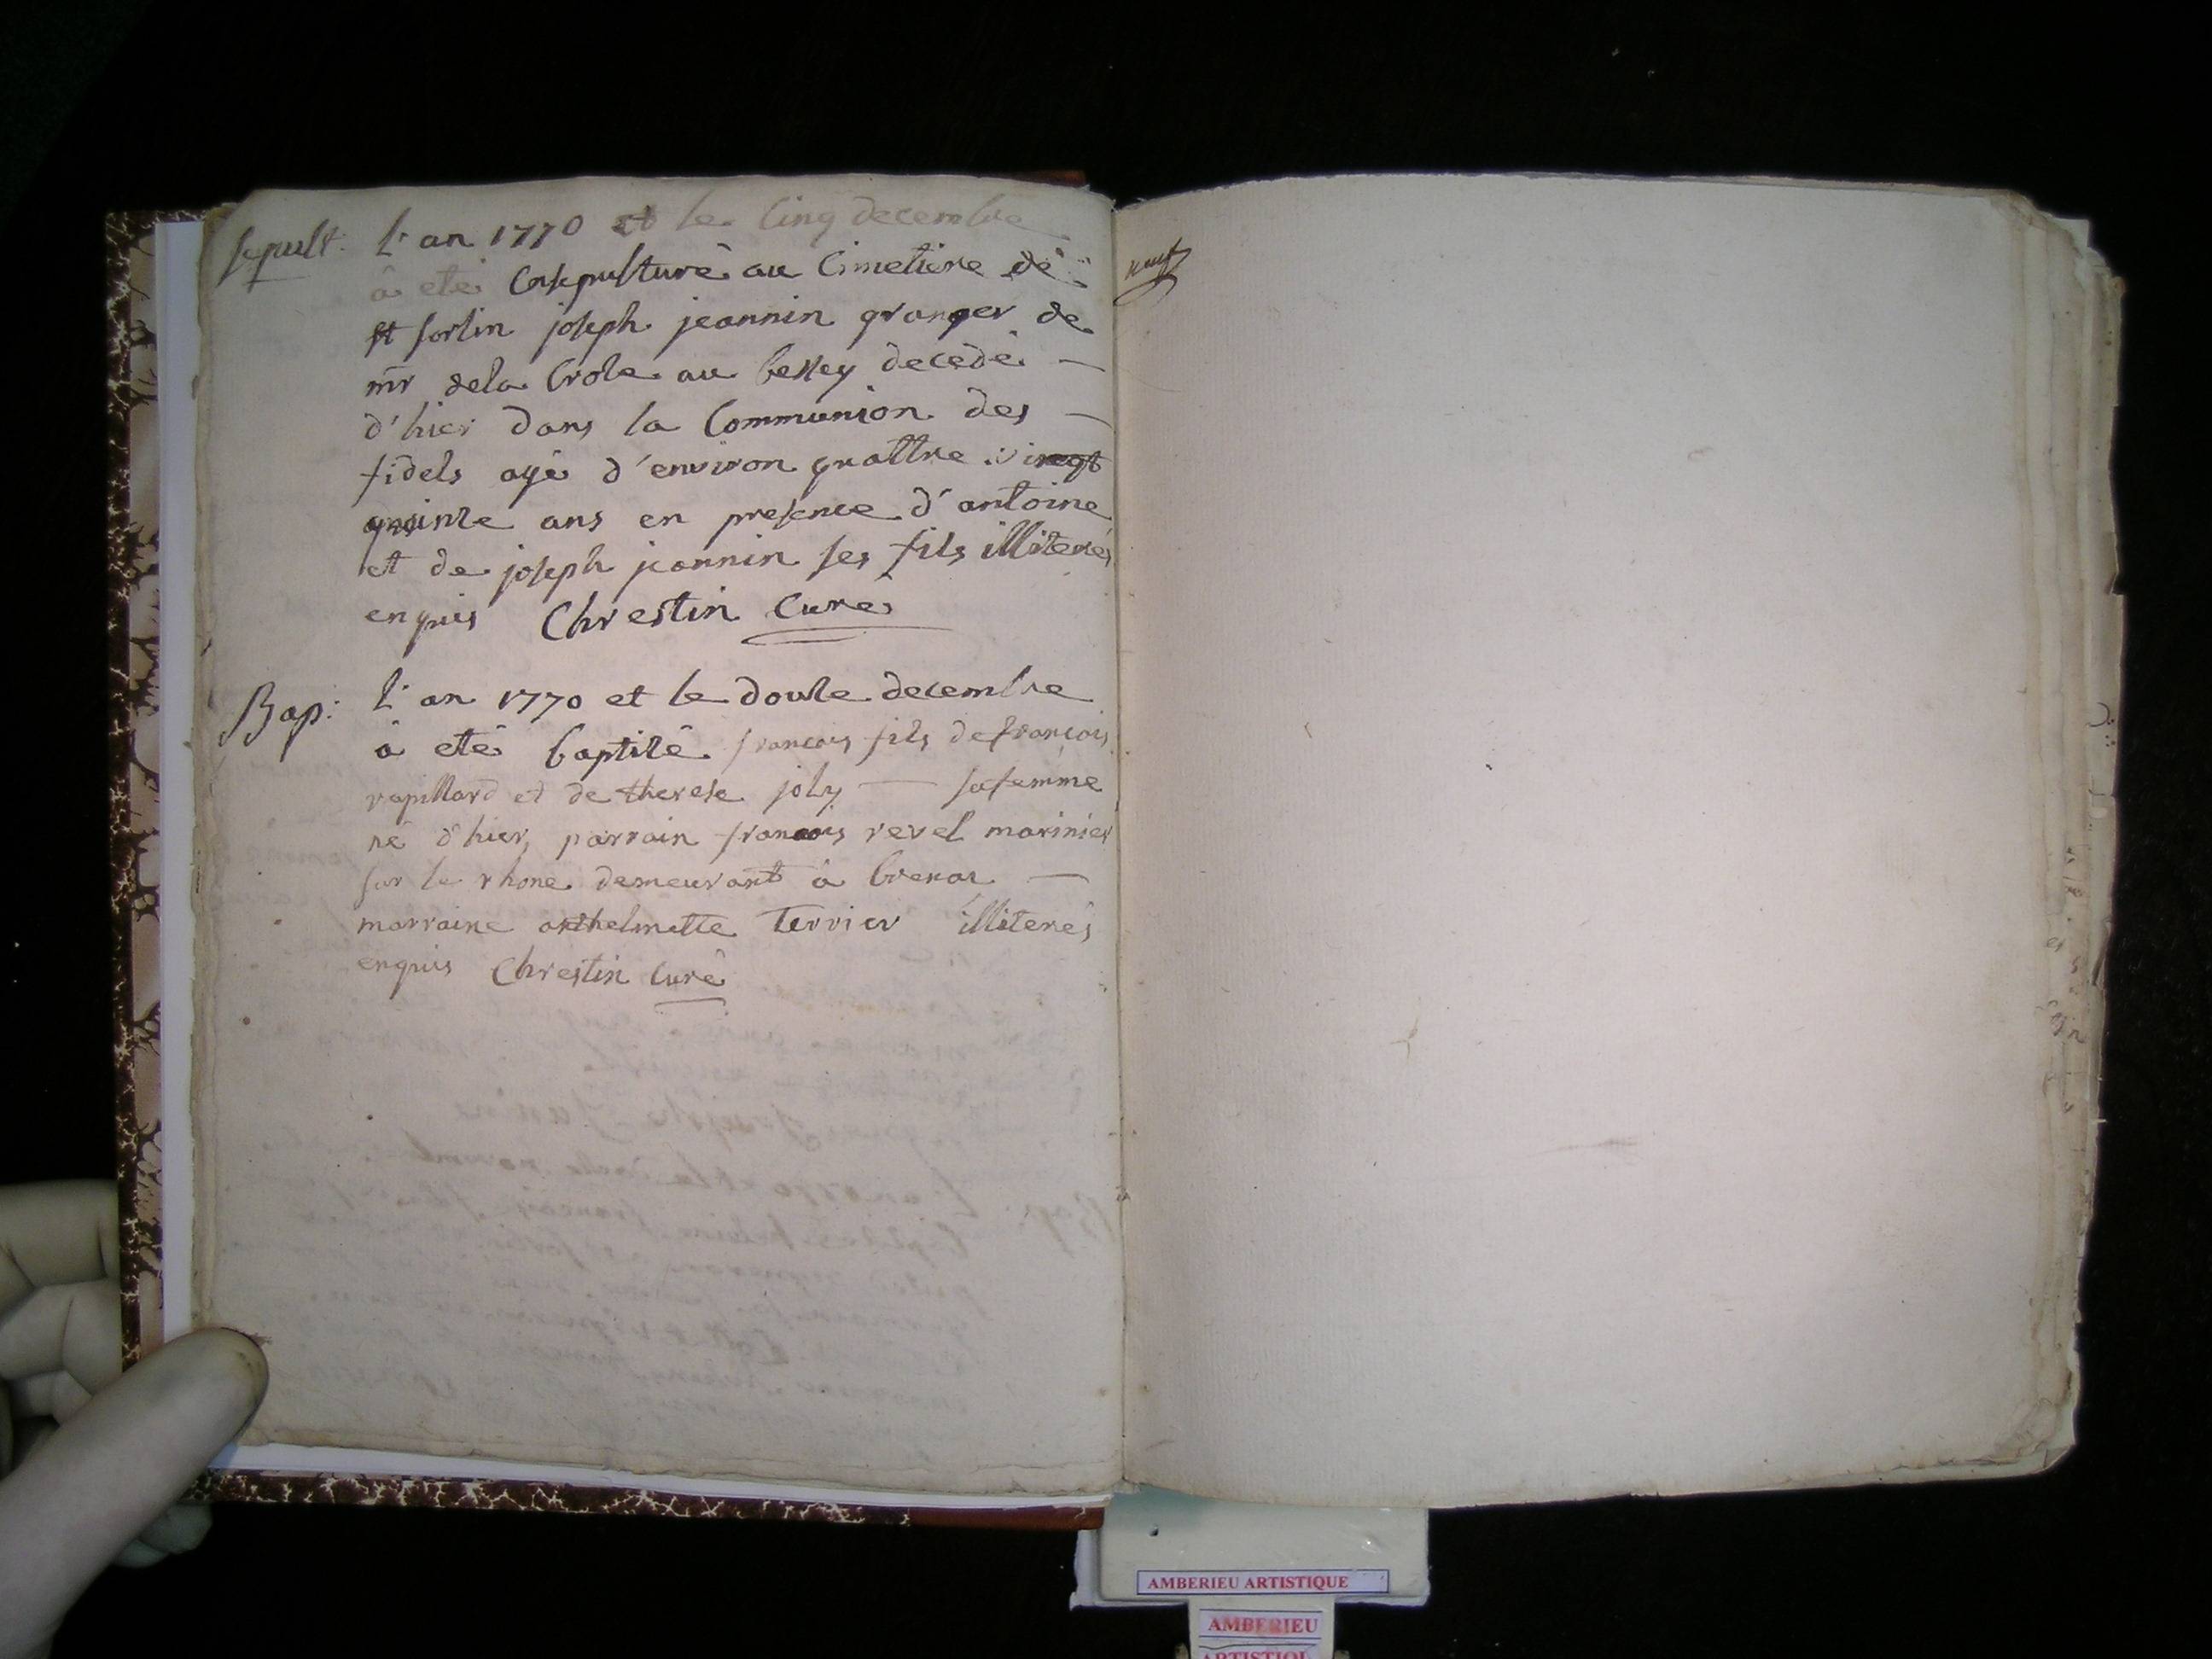 sepult.
L'an 1770 et le cinq decembre
à eté ensepulturé au cimetiere de
st sorlin joseph jeannin granger de
mr dela Crose au bessey decedé —
d'hier dans la Communion des —
fidels agé d'environ quattre vingt
quinze ans en presence d'antoine
et de joseph jeannin ses fils illiterés
enquis Chrestin Curé
Bap:
L'an 1770 et le douze decembre
à eté baptisé francois fils de françois
rapillard et de therese joly — sa femme
né d'hier, parrain francois revel marinier
sur le rhone demeurant à brenaz —
marraine anthelmette Terrier illiterés
enquis Chrestin Curé
AMBERIEU ARTISTIQUE
AMBERIEU
ARTISTIQUE